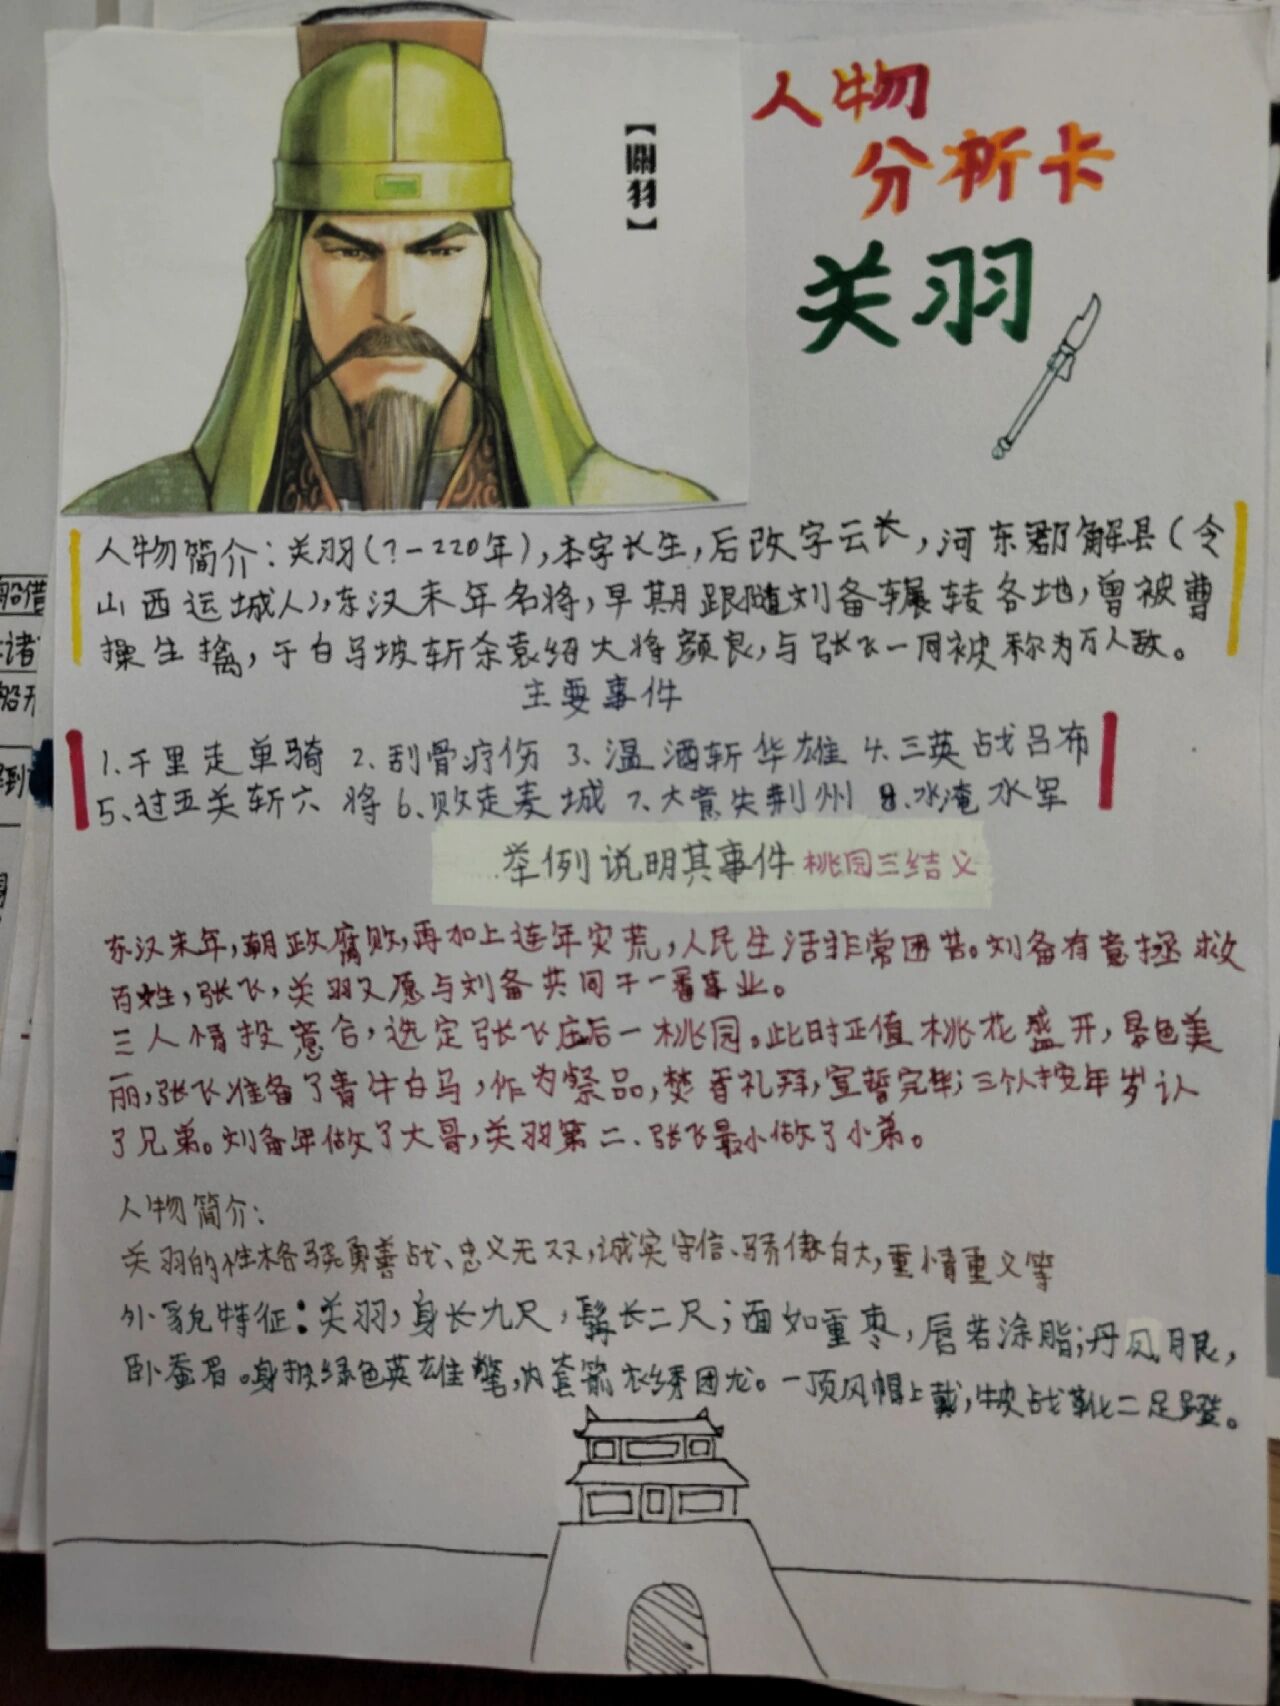 【關羽】
人物
分析卡
关羽
人物简介：关羽（?－220年），本字长生，后改字云长，河东郡解县（令
山西运城人），东汉末年名将，早期跟随刘备辗转各地，曾被曹
操生擒，于白马坡斩杀袁绍大将颜良，与张飞一同被称为万人敌。
主要事件
1.千里走单骑 2.刮骨疗伤 3.温酒斩华雄 4.三英战吕布
5.过五关斩六将 6.败走麦城 7.大意失荆州 8.水淹水军
举例说明其事件 桃园三结义
东汉末年，朝政腐败，再加上连年灾荒，人民生活非常困苦。刘备有意拯救
百姓，张飞，关羽又愿与刘备共同干一番事业。
三人情投意合，选定张飞庄后一桃园。此时正值桃花盛开，景色美
丽，张飞准备了青牛白马，作为祭品，焚香礼拜，宣誓完毕；三个人按年岁认
了兄弟。刘备年做了大哥，关羽第二、张飞最小做了小弟。
人物简介：
关羽的性格骁勇善战、忠义无双，诚实守信、骄傲自大，重情重义等
外貌特征：关羽，身长九尺，髯长二尺；面如重枣，唇若涂脂；丹凤眼，
卧蚕眉。身披绿色英雄氅，内套箭衣绣团龙。一顶风帽上戴，牛皮战靴二足蹬。
船借
诸
船开
到